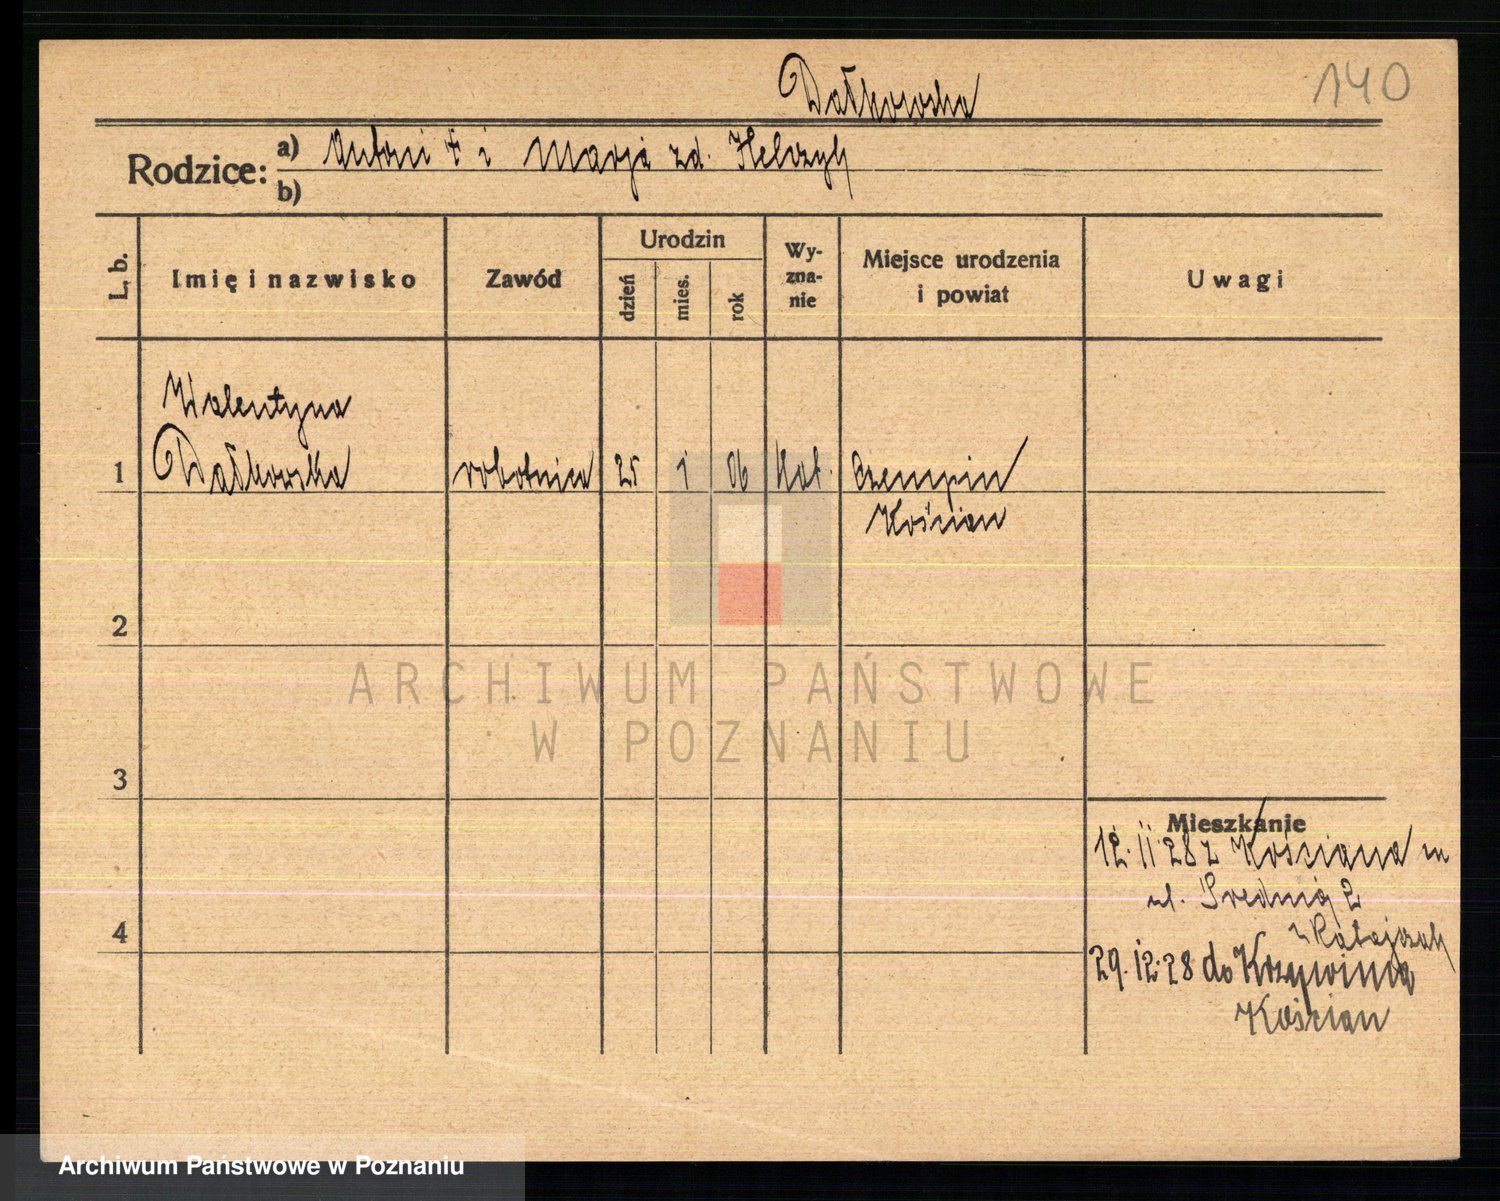 140
Dałkowska
Rodzice: a) Antoni † i Marja zd. Helczyk
b)
L. b.
Imię i nazwisko
Zawód
Urodzin
dzień
mies.
rok
Wy-
zna-
nie
Miejsce urodzenia
i powiat
Uwagi
Walentyna
1 Dałkowska robotnica 25 1 06 Kat. Czempiń
Kościan
2
ARCHIWUM PAŃSTWOWE
W POZNANIU
3
Mieszkanie
12.11.28 z Kościana
ul. Średnia 2
z Ratajczak
4
29.12.28 do Krzywinia
Kościan
Archiwum Państwowe w Poznaniu